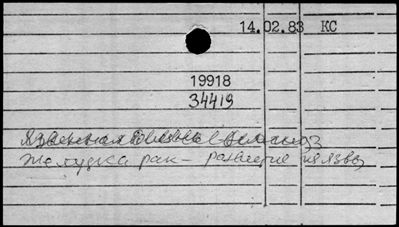 14.02.83 КС
19918
34419
Язвенная болезнь
Желудка рак - развитие из язвы